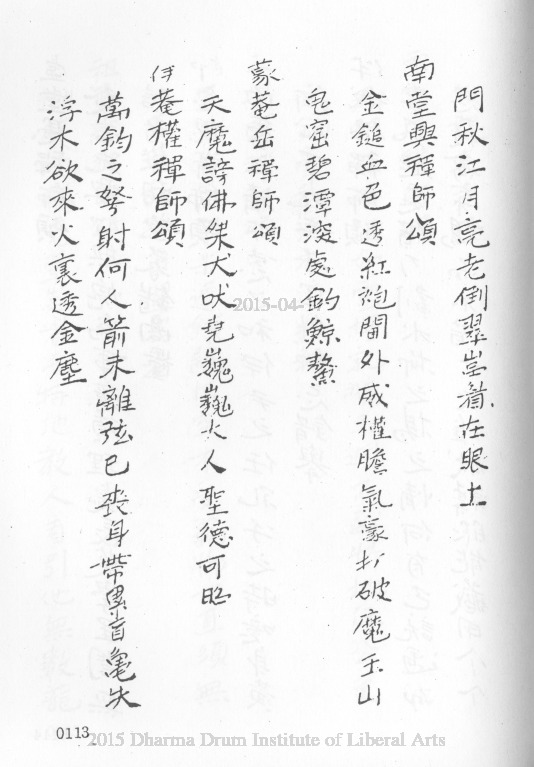 門秋江月亮老倒翠嵓着在眼上
南堂興禪師頌
金鎚血色透紅袍閫外威權膽氣豪打破魔王山
鬼窟碧潭深處釣鯨鰲
蒙菴岳禪師頌
天魔謗佛桀犬吠堯巍巍大人聖德可昭
伊菴權禪師頌
萬鈞之弩射何人箭未離弦已喪身帶累盲龜失
浮木欲來火裏透金塵
0113
2015-04-
2015 Dharma Drum Institute of Liberal Arts